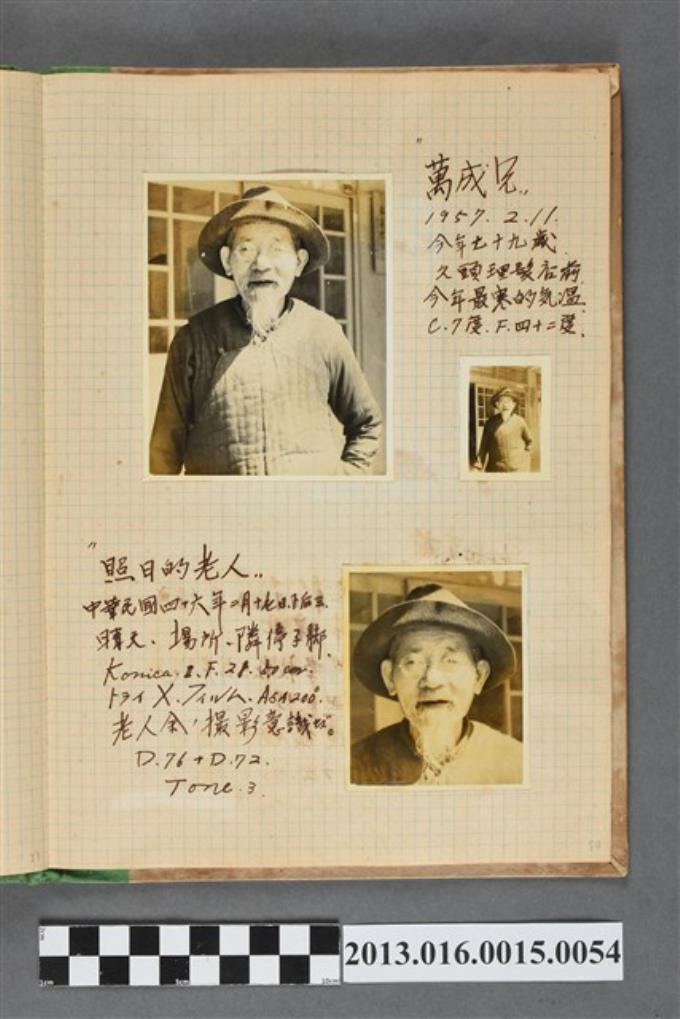 "萬成兄„
1957. 2. 11.
今年七十九歲
久頭理髮店前
今年最寒的気温
C.7度. F.四十二度.
"照日的老人„
中華民國四十六年二月十七日.下后三.
晴天、場所、隣停子脚.
Konica.Ⅱ.F.2f.50cm.
トライX.フィルム.ASA200°.
老人余り撮影意識セズ。
D.76+D.72.
Tone.3.
2013.016.0015.0054